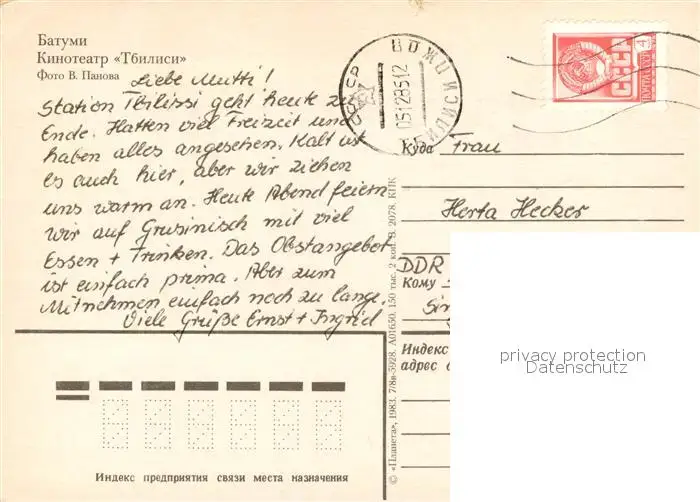 Батуми
Кинотеатр «Тбилиси»
Фото В. Панова
Liebe Mutti!
Station Tbilissi geht heute zu
Ende. Hatten viel Freizeit und
haben alles angesehen. Kalt ist
es auch hier, aber wir ziehen
uns warm an. Heute Abend feiern
wir auf Grusinisch mit viel
Essen + Trinken. Das Obstangebot
ist einfach prima. Aber zum
Mitnehmen einfach noch zu lange.
Viele Grüße Ernst + Ingrid
Индекс предприятия связи места назначения
© «Планета», 1983. 7/8в-5928. А01650. 150 тыс. 2 коп. З. 2078. КПК
СССР
05128512
СССР
ПОЧТА СССР
4
Куда Frau
Herta Hecker
DDR
Кому
Sin
Индекс
адрес
privacy protection
Datenschutz